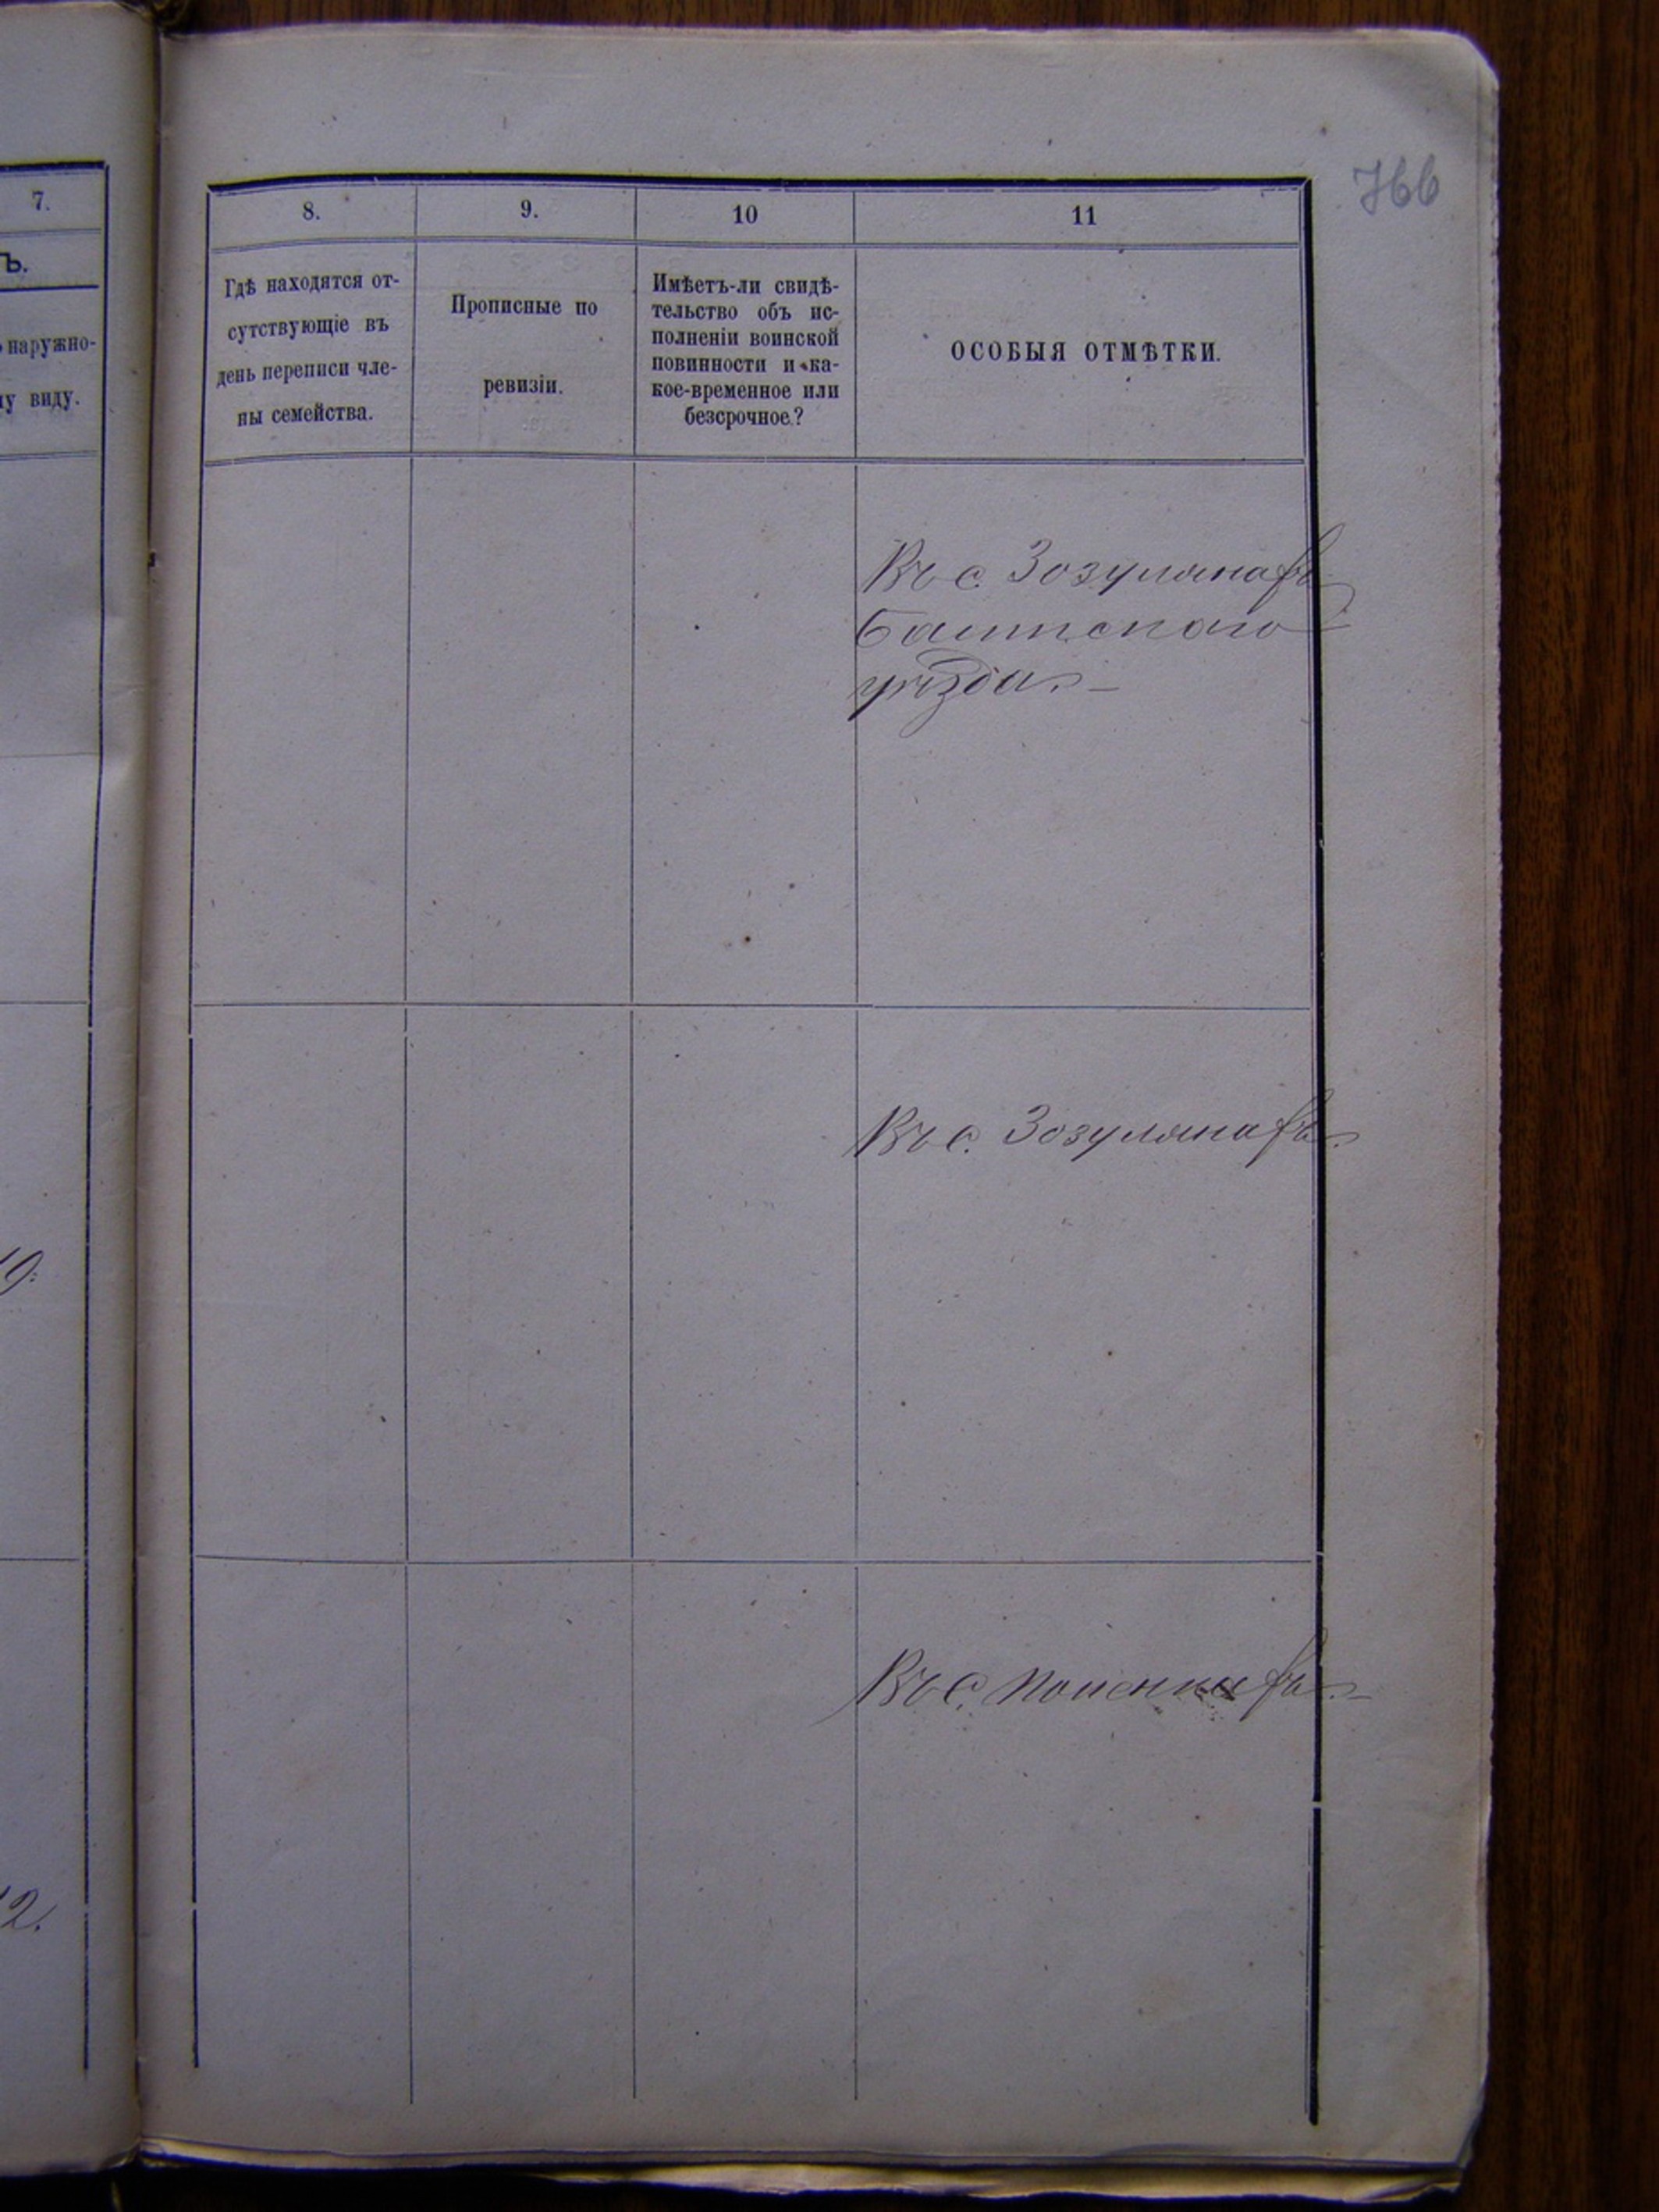 766
7.
Ъ.
наружно-
виду.
19.
12.
8.
9.
10
11
Гдѣ находятся от-
сутствующіе въ
день переписи чле-
ны семейства.
Прописные по
ревизіи.
Имѣетъ-ли свидѣ-
тельство объ ис-
полненіи воинской
повинности и ка-
кое-временное или
безсрочное?
ОСОБЫЯ ОТМѢТКИ.
Въ с. Зозулянахъ
Балтскаго
уѣзда. –
Въ с. Зозулянахъ.
Въ с.